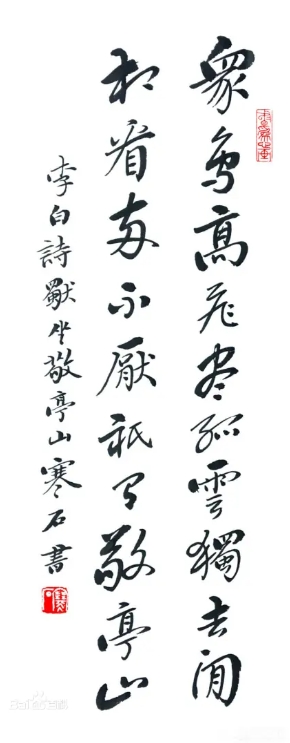 眾鳥高飛盡孤雲獨去閒
相看兩不厭祇有敬亭山
李白詩獨坐敬亭山寒石書